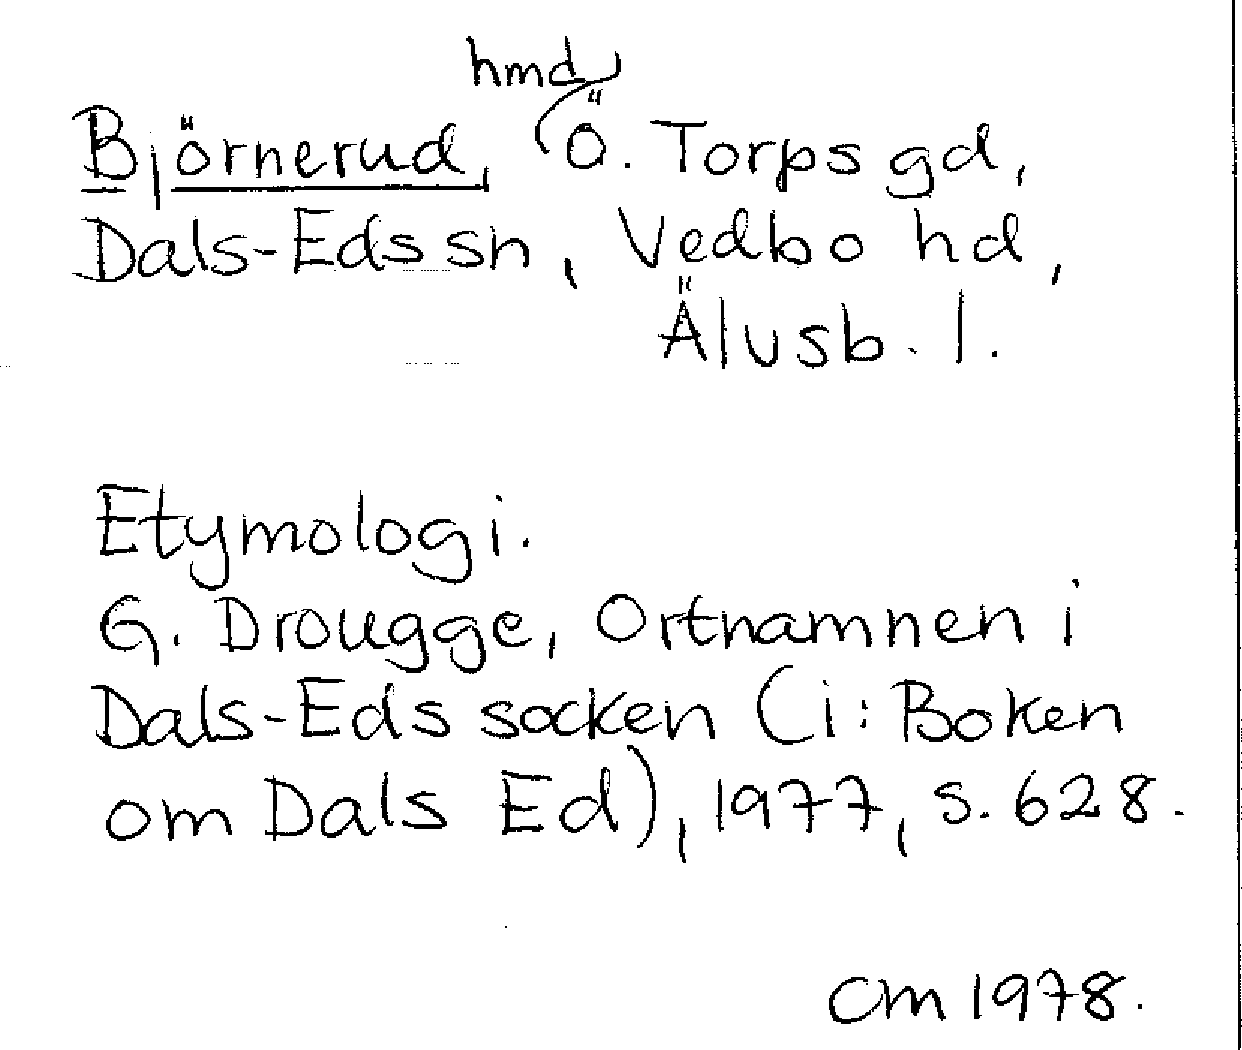 hmd
Björnerud, Ö. Torps gd,
Dals-Eds sn, Vedbo hd,
Älvsb. l.
Etymologi.
G. Drougge, Ortnamnen i
Dals-Eds socken (i: Boken
om Dals Ed), 1977, s. 628.
CM 1978.